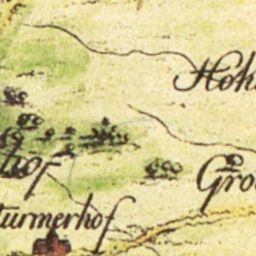 Hoh
hof
Gro
turmerhof